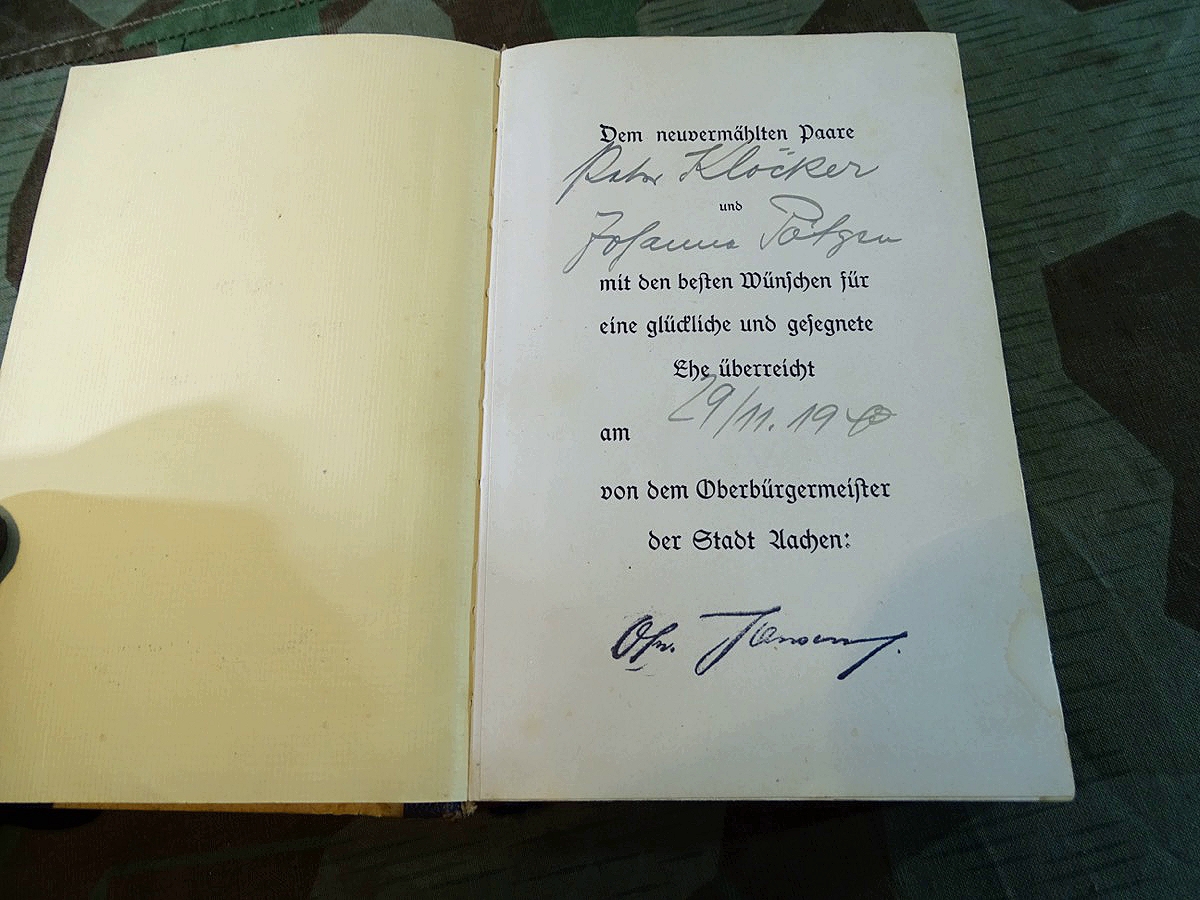 Dem neuvermählten Paare
Peter Klöcker
und
Johanna Pötgen
mit den besten Wünschen für
eine glückliche und gesegnete
Ehe überreicht
29/11. 1940
am
von dem Oberbürgermeister
der Stadt Aachen:
Jansen